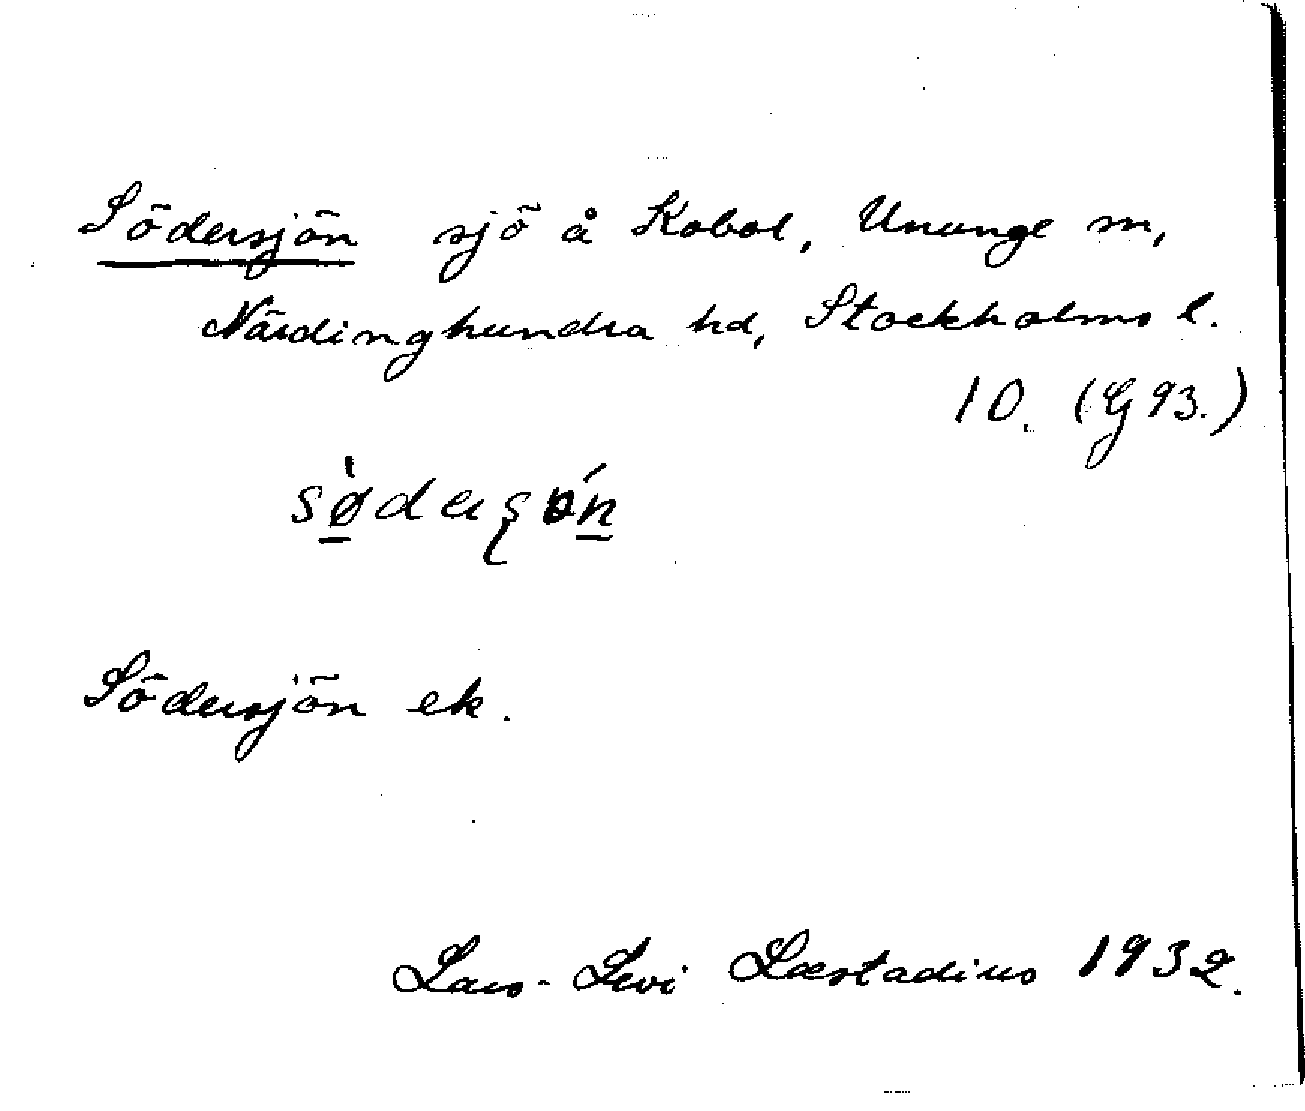 Södersjön sjö å Kobol, Ununge sn,
Närdinghundra hd, Stockholms l.
10. (G 93.)
Södersjön ek.
Lars-Levi Læstadius 1932.